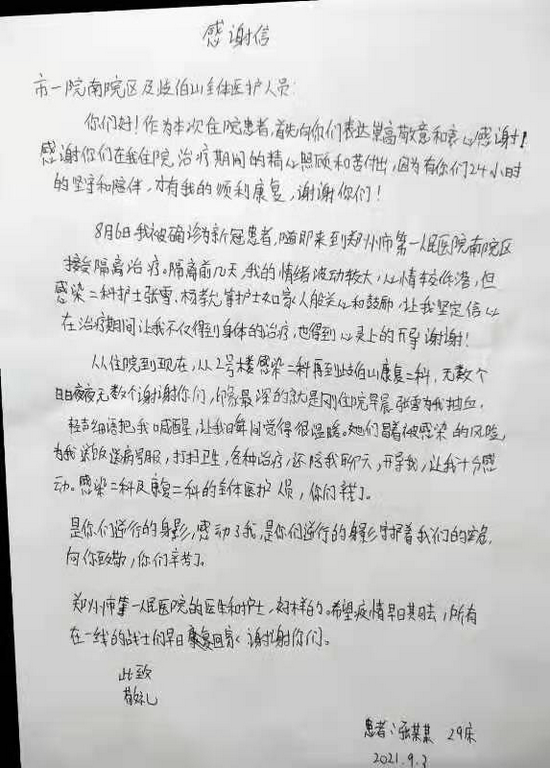 感谢信
市一院南院区及岐伯山全体医护人员：
你们好！作为本次住院患者，首先向你们表达崇高敬意和衷心感谢！
感谢你们在我住院治疗期间的精心照顾和苦付出，因为有你们24小时
的坚守和陪伴，才有我的顺利康复，谢谢你们！
8月6日我被确诊为新冠患者，随即来到郑州市第一人民医院南院区
接受隔离治疗。隔离前几天，我的情绪波动较大，心情较低落，但
感染二科护士张雪、杨孝允等护士如家人般关心和鼓励，让我坚定信心
在治疗期间让我不仅得到身体的治疗，也得到心灵上的开导谢谢！
从住院到现在，从2号楼感染二科再到岐伯山康复二科，无数个
日日夜夜无数个谢谢你们，印象最深的就是刚住院早晨张雪为我抽血，
轻声细语把我喊醒，让我瞬间觉得很温暖。她们冒着被感染的风险，
为我送饭送病号服，打扫卫生，各种治疗，还陪我聊天，开导我，让我十分感
动。感染二科及康复二科的全体医护人员，你们辛苦了。
是你们逆行的身影，感动了我，是你们逆行的身影守护着我们的安危，
向你致敬，你们辛苦了。
郑州市第一人民医院的医生和护士，好样的。希望疫情早日过去，所有
在一线的战士们早日康复回家 谢谢你们。
此致
敬礼
患者：张某某 29床
2021.9.3